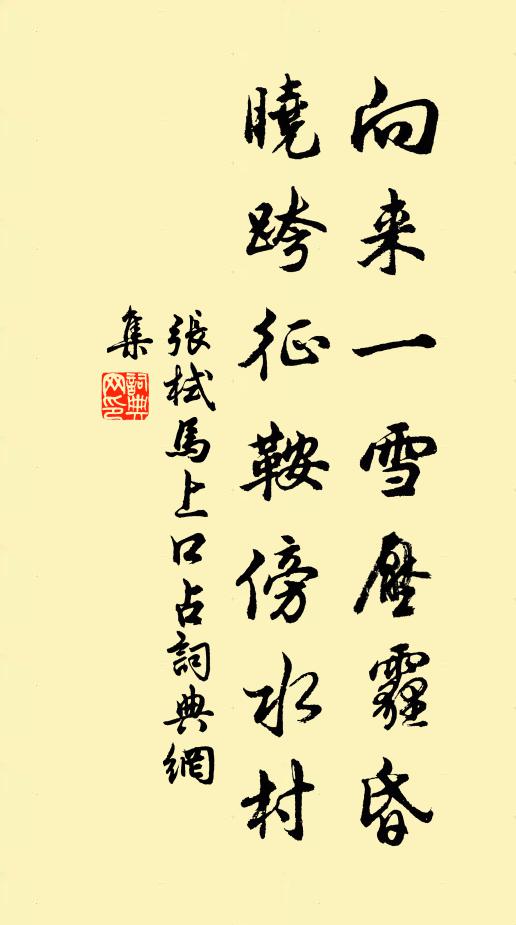 向来一雪壓霾昏
曉跨征鞍傍水村
張栻馬上口占詞典網
集
詞典
网印